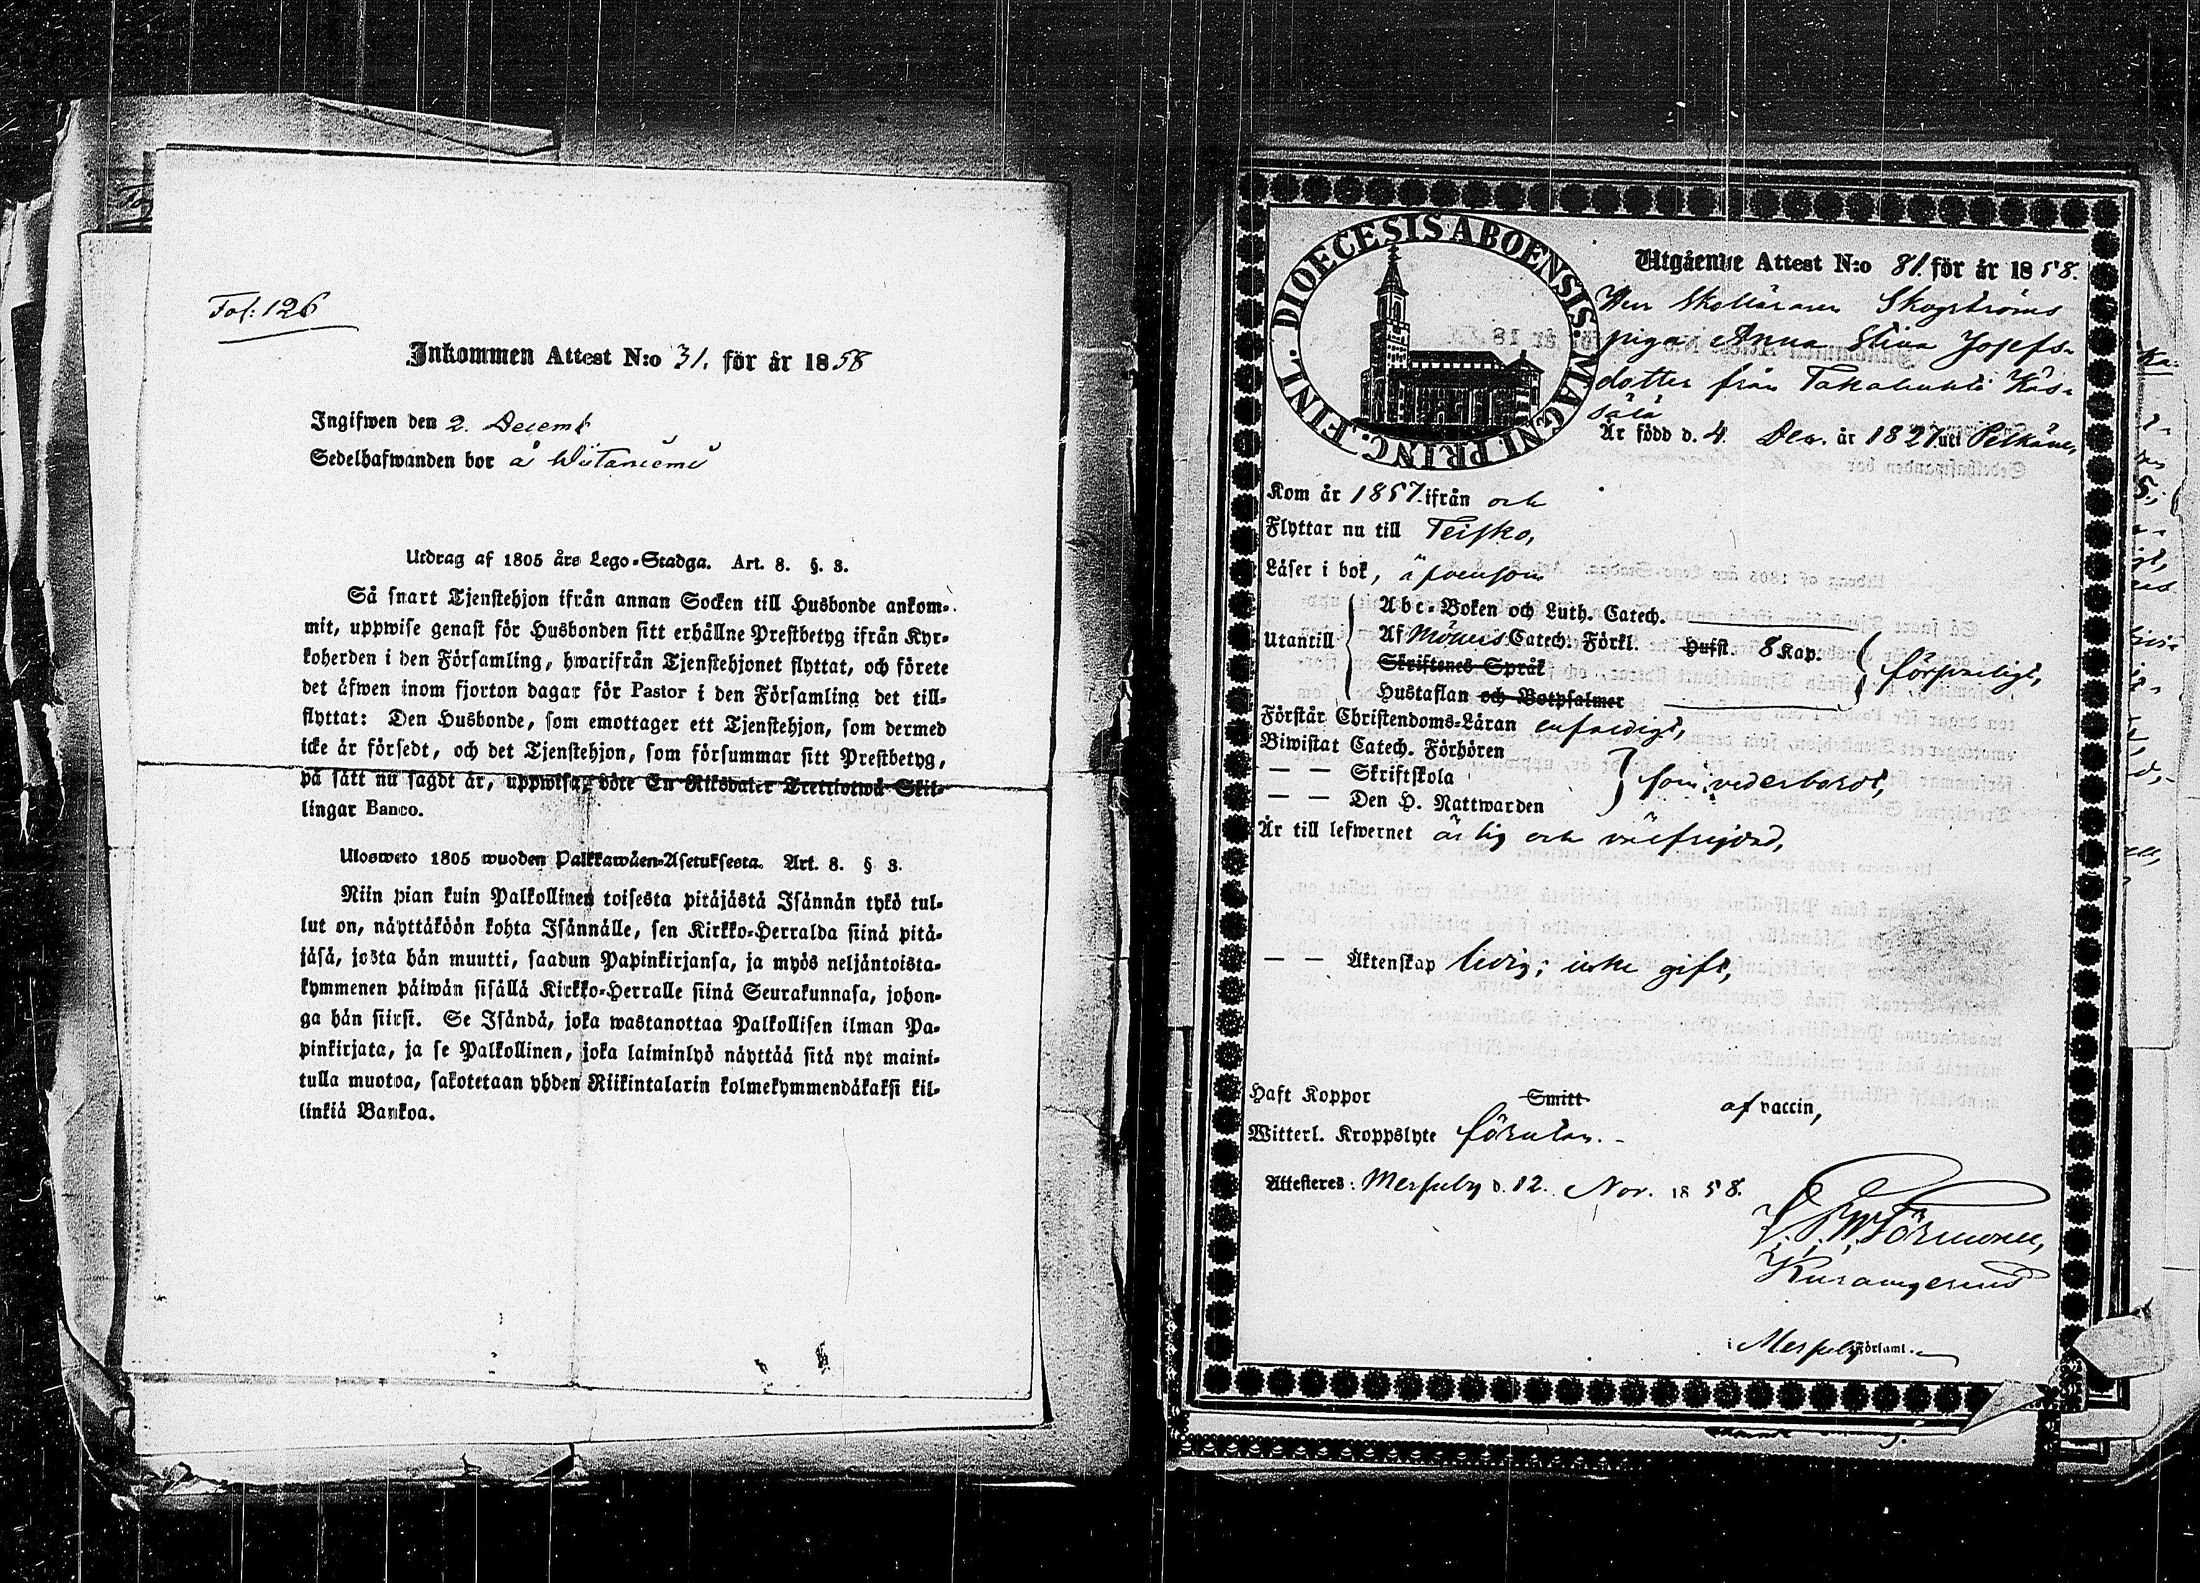 Fol: 126
Inkommen Attest N:o 31. för år 1858
Ingifwen den 2. Decemb
Sedelhafwanden bor å Wiitaniemi
Utdrag af 1805 års Lego-Stadga. Art. 8. §. 3.
Så snart Tjenstehjon ifrån annan Socken till Husbonde ankom-
mit, uppwise genast för Husbonden sitt erhållne Prestbetyg ifrån Kyr-
koherden i den Församling, hwarifrån Tjenstehjonet flyttat, och förete
det äfwen inom fjorton dagar för Pastor i den Församling det till-
flyttat: Den Husbonde, som emottager ett Tjenstehjon, som dermed
icke är försedt, och det Tjenstehjon, som försummar sitt Prestbetyg,
på sätt nu sagdt är, uppwisa, böte En Riksdaler Trettiotwå Skil-
lingar Banco.
Ulosweto 1805 wuoden Palkkawäen-Asetuksesta. Art. 8. § 3.
Niin pian kuin Palkollinen toisesta pitäjästä Isännän tykö tul-
lut on, näyttäköön kohta Isännälle, sen Kirkko-Herralda siinä pitä-
jäsä, josta hän muutti, saadun Papinkirjansa, ja myös neljäntoista-
kymmenen päiwän sisällä Kirkko-Herralle siinä Seurakunnasa, johon-
ga hän siirsi. Se Isändä, joka wastanottaa Palkollisen ilman Pa-
pinkirjata, ja se Palkollinen, joka laiminlyö näyttää sitä nyt maini-
tulla muotoa, sakotetaan yhden Riikintalarin kolmekymmendäkaksi kil-
linkiä Bankoa.
DIOECESIS ABOENSIS. MAGNI PRINC. FINL.
Utgående Attest N:o 81. för år 1858.
Skogströms
piga Anna Stina Josefs-
dotter från Takahuhti Käs-
sälä
Är född d. 4 Dec. år 1827 uti Pelkäne,
Kom år 1857. ifrån och
Flyttar nu till Teisko,
Läser i bok, äfvensom
Abc-Boken och Luth. Catech.
Utantill Af Möllers Catech. Förkl. Hufst. 8 Kap. försvarligt,
Skriftenes Språk
Hustaflan och Botpsalmer
Förstår Christendoms-Läran enfaldigt,
Biwistat Catech. Förhören
— — Skriftskola som vederbordt,
— — Den H. Nattwarden
Är till lefwernet ärlig och välfrejdad,
— — Äktenskap ledig; icke gift,
Haft Koppor Smitt af vaccin,
Witterl. Kroppslyte förutan. -
Attesteres: Messuby d. 12. Nov. 1858.
i Messuby Församl.